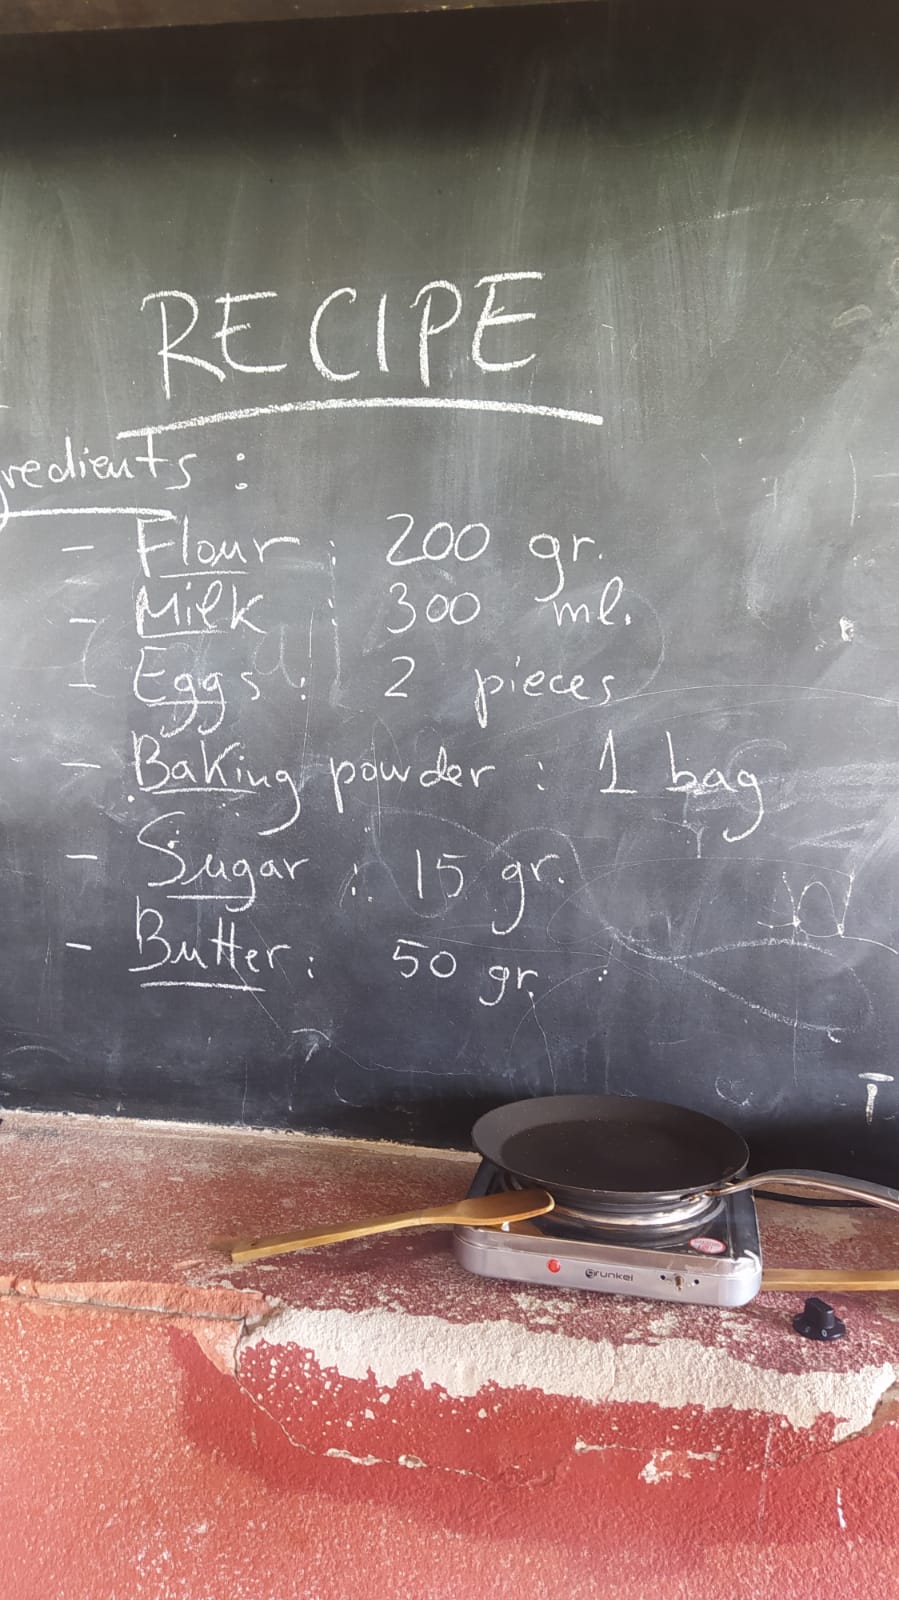 RECIPE
gredients :
- Flour : 200 gr.
- Milk : 300 ml.
- Eggs : 2 pieces
- Baking powder : 1 bag
- Sugar : 15 gr.
- Butter : 50 gr.
Brunkel